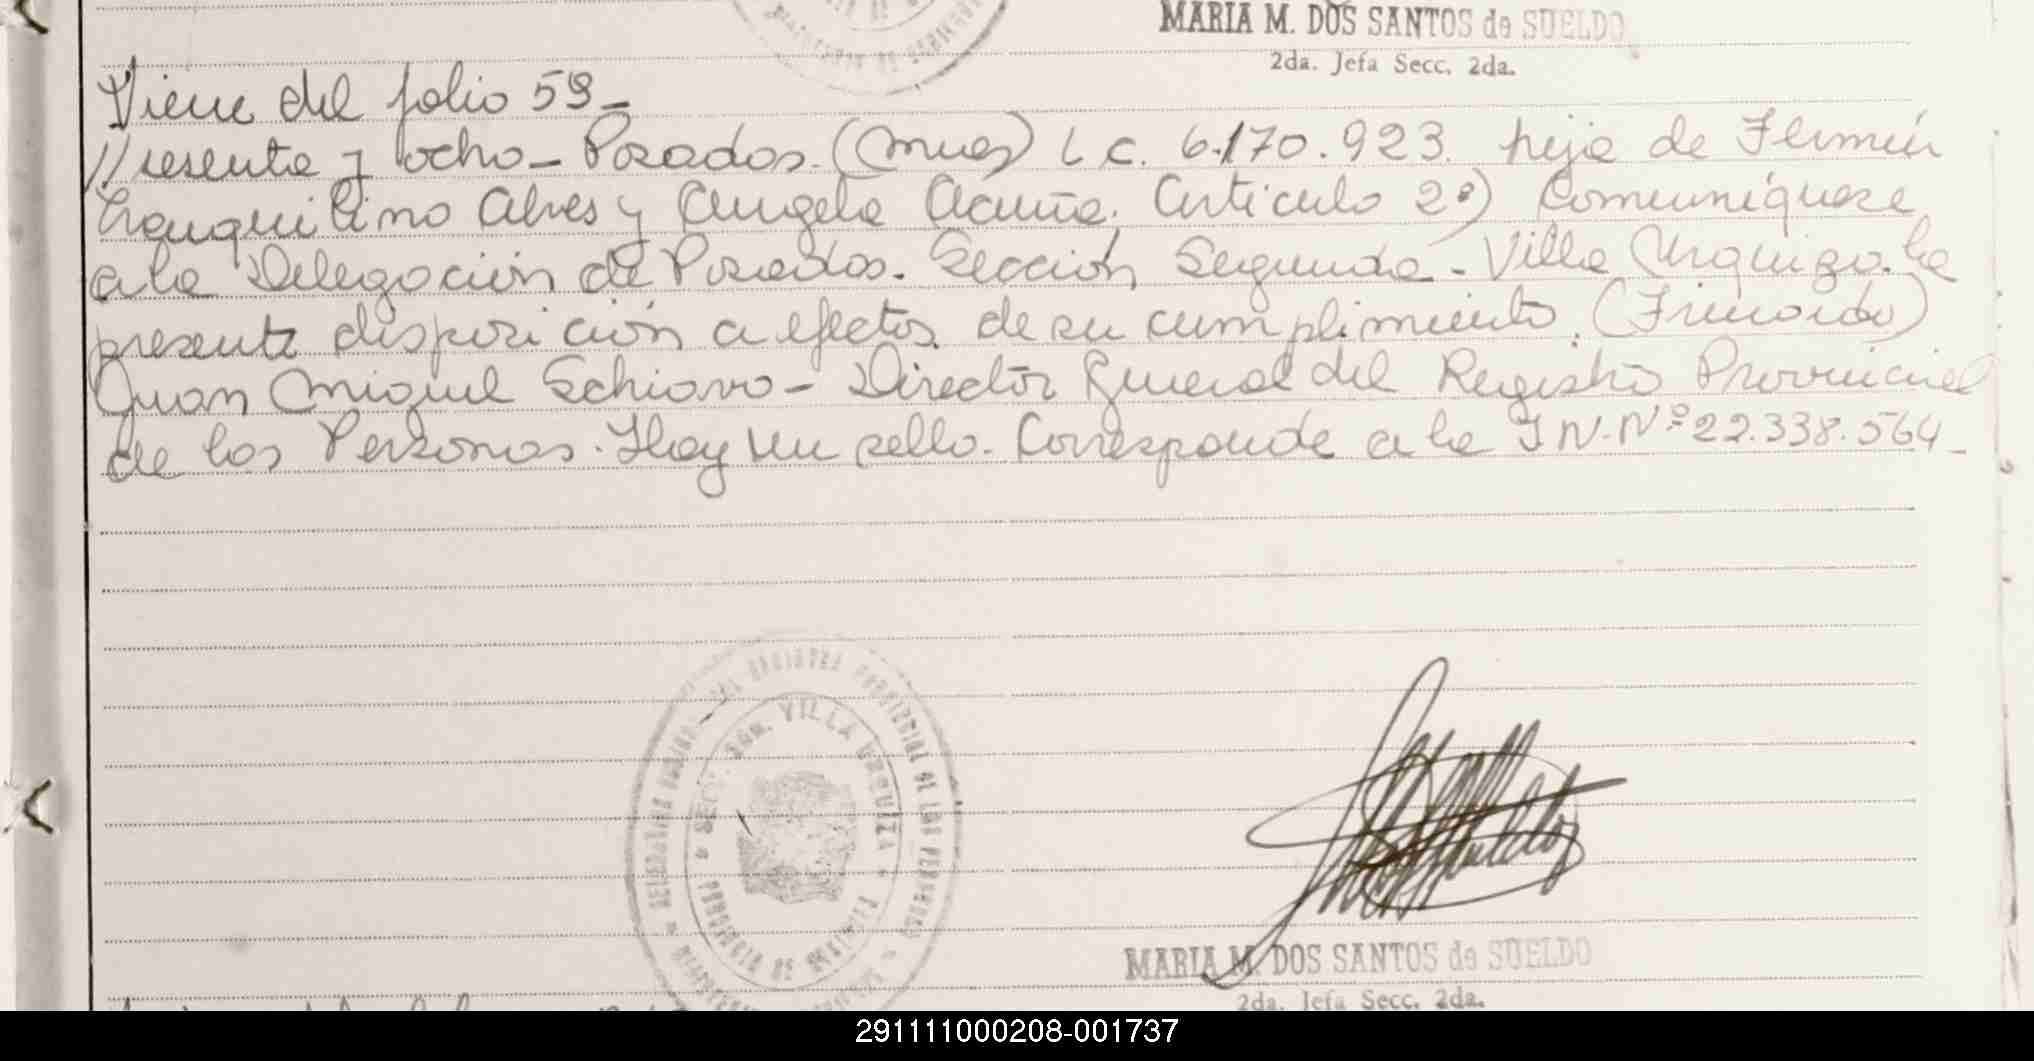 MARIA M. DOS SANTOS de SUELDO
2da. Jefa Secc. 2da.
Viene del folio 59-
//sesenta y ocho- Posadas. (Mnes) L C. 6.170.923. hija de Fermín
Tranquilino Alves y Angela Acuña. Artículo 2º) Comuníquese
a la Delegación de Posadas. Sección Segunda - Villa Urquiza. la
presente disposición a efectos de su cumplimiento. (Firmado)
Juan Miguel Schiavo - Director General del Registro Provincial
de las Personas. Hay un sello. Corresponde a la I N. Nº 22.338.564-
REGISTRO PROVINCIAL DE LAS PERSONAS
SECC. 2DA. VILLA URQUIZA
PROVINCIA DE MISIONES
MARIA M. DOS SANTOS de SUELDO
2da. Jefa Secc. 2da.
291111000208-001737